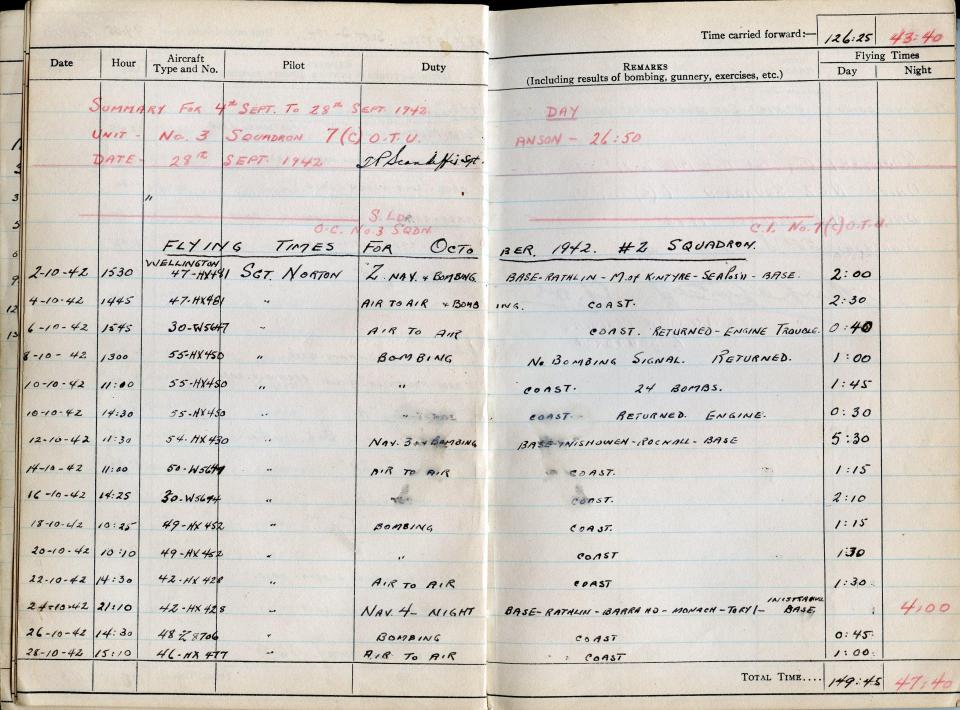 Time carried forward:— 126:25 43:40
Date Hour Aircraft Type and No. Pilot Duty REMARKS (Including results of bombing, gunnery, exercises, etc.) Flying Times Day Night
SUMMARY FOR 4TH SEPT. TO 28TH SEPT. 1942. DAY
UNIT - No. 3 SQUADRON 7(C) O.T.U. ANSON - 26:50
DATE - 28TH SEPT. 1942
S. LDR. 
O.C. No. 3 SQDN. C.I. No. 7(C) O.T.U.
FLYING TIMES FOR OCTOBER, 1942. #2 SQUADRON.
WELLINGTON
2-10-42 1530 47-HX481 SGT. NORTON 2. NAV. & BOMBING BASE-RATHLIN-M. of KINTYRE-SEA POS'N - BASE. 2:00
4-10-42 1445 47-HX481 " AIR TO AIR & BOMBING. COAST. 2:30
6-10-42 1545 30-W5647 " AIR TO AIR COAST. RETURNED-ENGINE TROUBLE. 0:40
8-10-42 1300 55-HX450 " BOMBING No BOMBING SIGNAL. RETURNED. 1:00
10-10-42 11:00 55-HX450 " " COAST. 24 BOMBS. 1:45
10-10-42 14:30 55-HX450 " " COAST. RETURNED. ENGINE. 0:30
12-10-42 11:30 54-HX430 " NAV. 3 BOMBING BASE-INISHOWEN-ROCKALL-BASE 5:30
14-10-42 11:00 50-W5649 " AIR TO AIR COAST. 1:15
16-10-42 14:25 30-W5674 " " COAST. 2:10
18-10-42 10:25 49-HX452 " BOMBING COAST. 1:15
20-10-42 10:10 49-HX452 " " COAST 1:30
22-10-42 14:30 42-HX428 " AIR TO AIR COAST 1:30
24-10-42 21:10 42-HX428 " NAV. 4- NIGHT BASE-RATHLIN-BARRA HD-MONACH-TORY I- INISTRAHUL BASE 4:00
26-10-42 14:30 48-Z8706 " BOMBING COAST 0:45
28-10-42 15:10 46-HX477 " AIR TO AIR COAST 1:00
TOTAL TIME.... 149:45 47:40